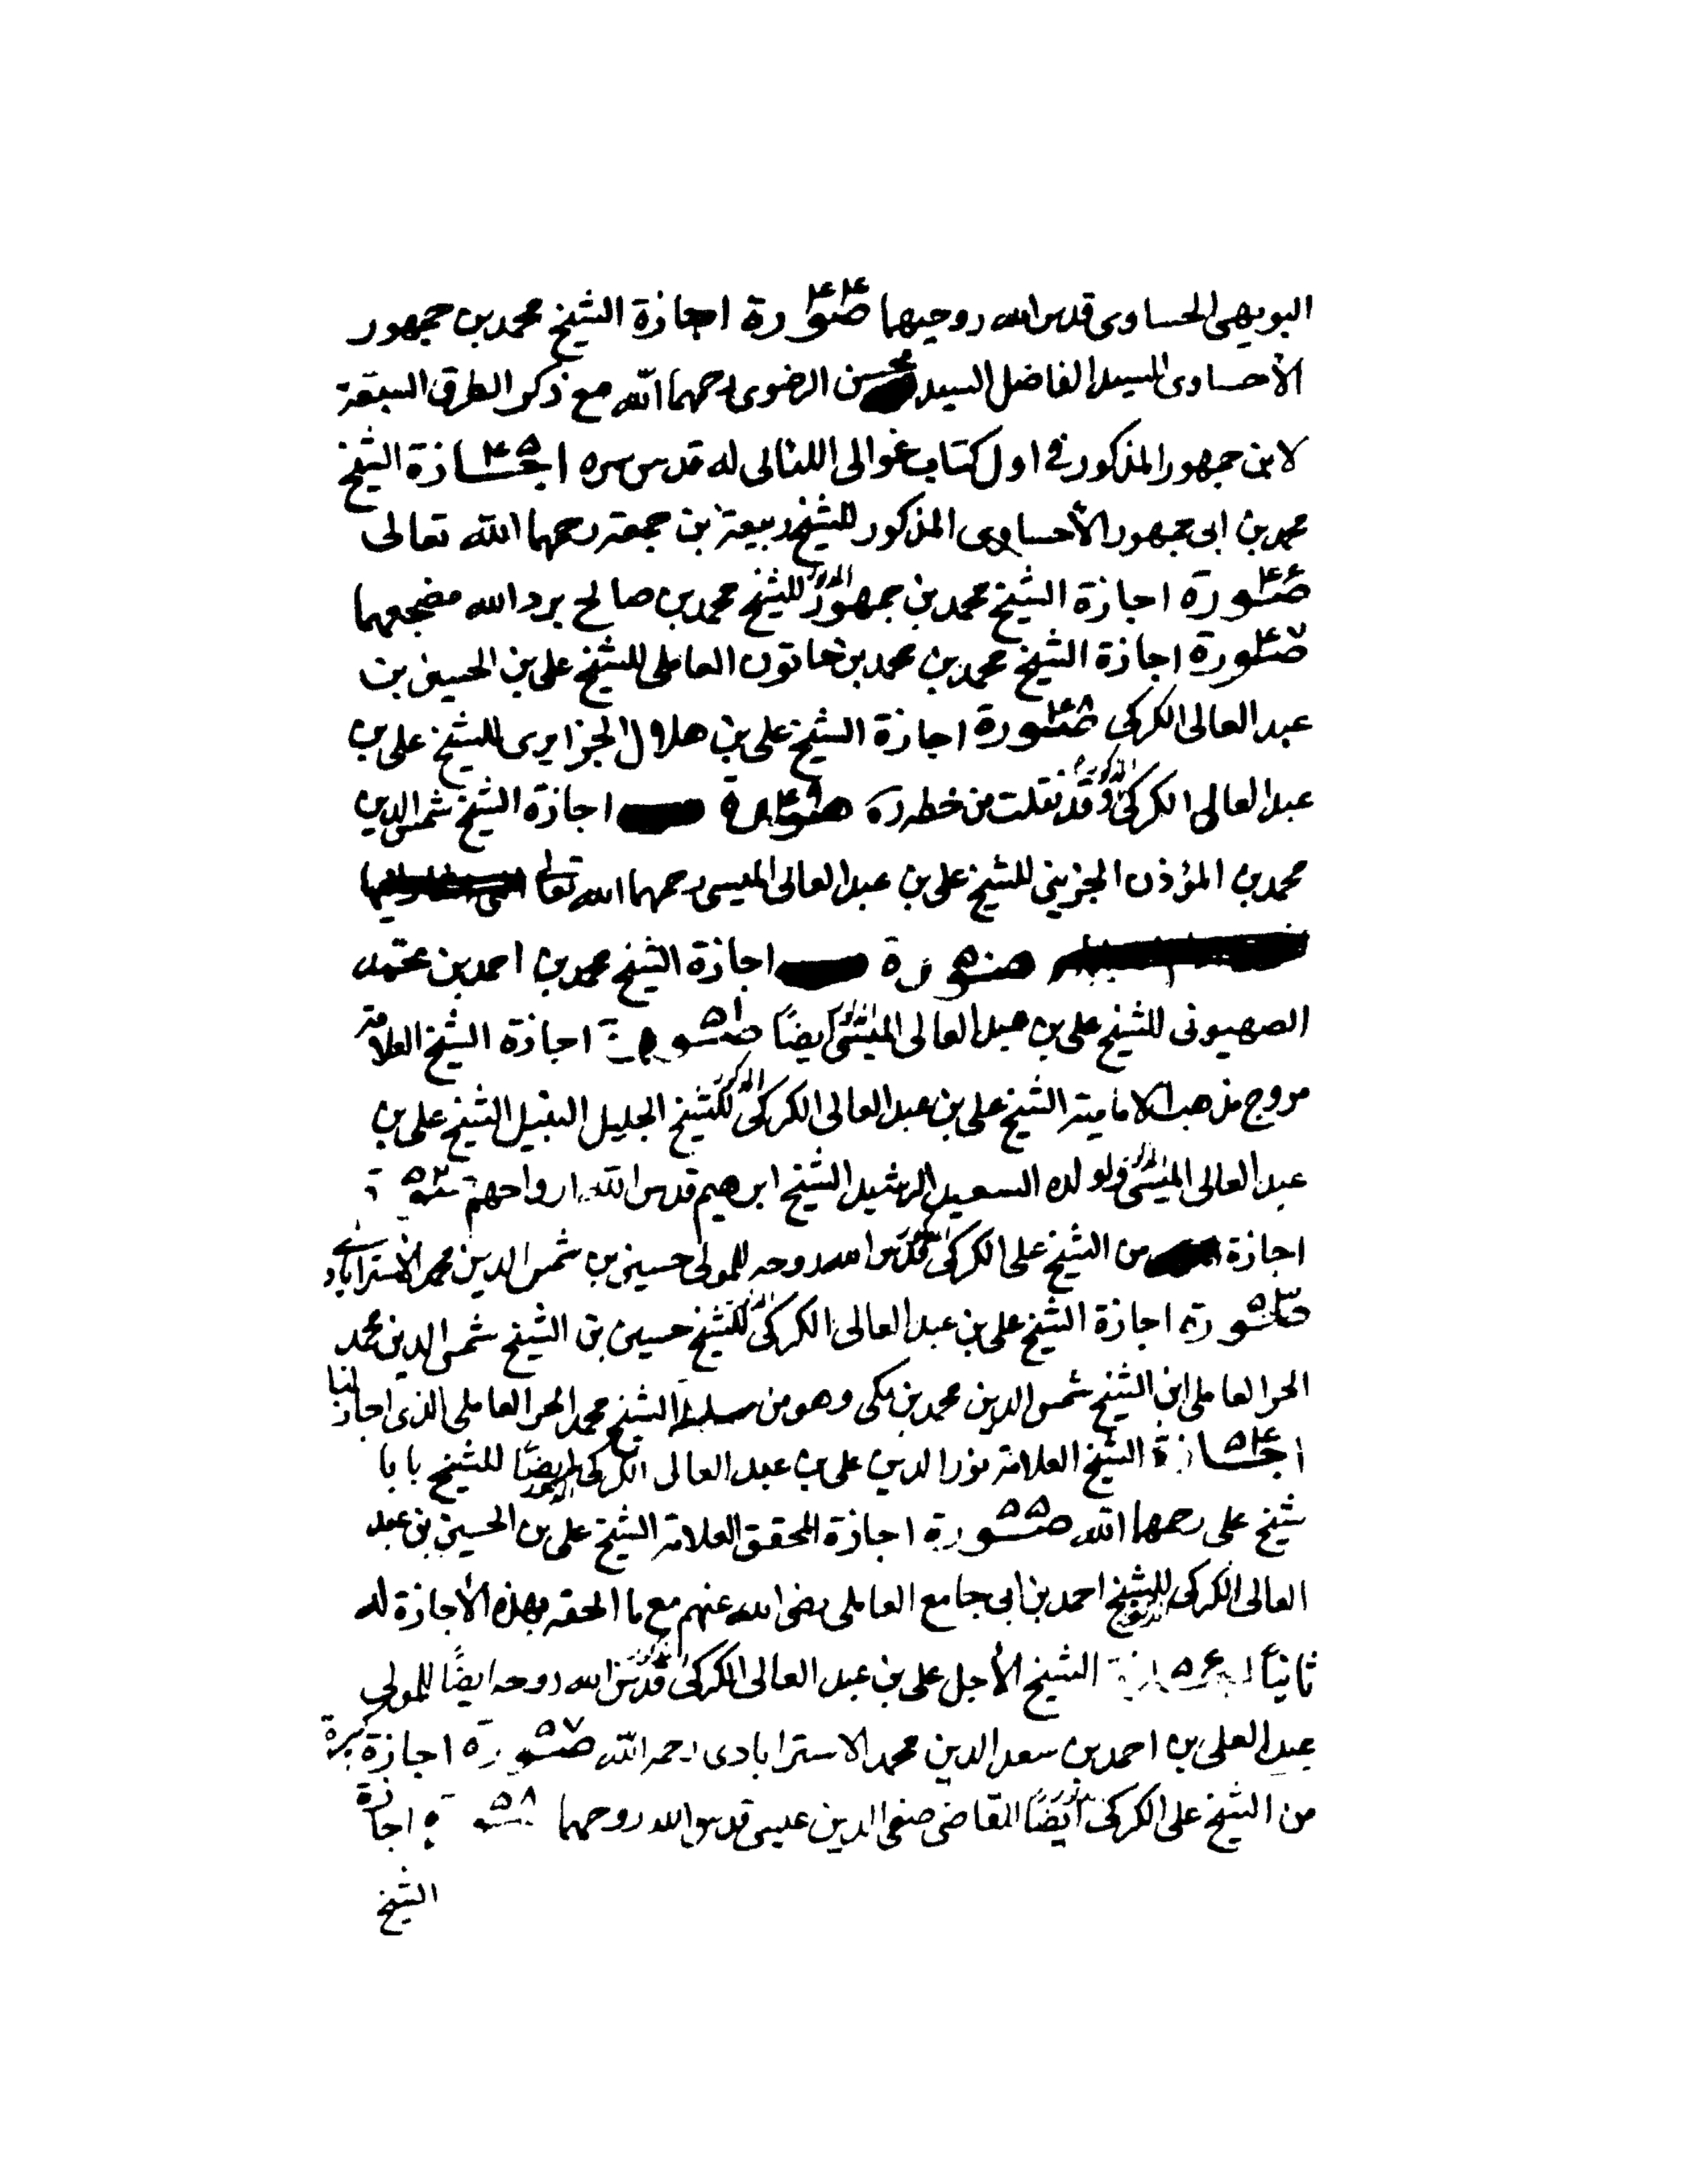 البويهي الحساوي قدس الله روحيهما صورة ۴۴ اجازة الشيخ محمد بن جمهور
الأحساوى للسيد الفاضل السيد محسن الرضوى رحمهما الله مع ذكر الطرق السبعة
لابن جمهور المذكور في اول كتاب غوالى اللئالى له قدس سره اجازة ۴۵ الشيخ
محمد بن ابى جمهور الأحساوى المذكور للشيخ ربيعة بن جمعة رحمهما الله تعالى
صورة ۴۶ اجازة الشيخ محمد بن جمهور المذكور للشيخ محمد بن صالح برد الله مضجعهما
صورة ۴۷ اجازة الشيخ محمد بن محمد بن خاتون العاملى للشيخ على بن الحسين بن
عبد العالى الكركى صورة ۴۸ اجازة الشيخ على بن هلال الجزايرى للشيخ على بن
عبد العالى الكركى المذكور وقد نقلت من خطه ره صورة ۴۹ اجازة الشيخ شمس الدين
محمد بن المؤذن الجزينى للشيخ على بن عبد العالى الميسى رحمهما الله تعالى
صورة ۵۰ اجازة الشيخ محمد بن احمد بن محمد
الصهيونى للشيخ على بن عبد العالى الميسى المذكور ايضًا صورة ۵۱ اجازة الشيخ العلامة
مروج مذهب الامامية الشيخ على بن عبد العالى الكركى المذكور للشيخ الجليل النبيل الشيخ على بن
عبد العالى الميسى المذكور ولولده السعيد الرشيد الشيخ ابرهيم قدس الله ارواحهم صورة ۵۲
اجازة من الشيخ على الكركى قدس الله روحه للمولى حسين بن شمس الدين محمد الأسترابادى
صورة ۵۳ اجازة الشيخ على بن عبد العالى الكركى المذكور للشيخ حسين بن الشيخ شمس الدين محمد
الحر العاملى ابن الشيخ شمس الدين محمد بن مكى وهو من سلسلة الشيخ محمد الحر العاملى الذى اجاز لنا
اجازة ۵۴ الشيخ العلامة نور الدين على بن عبد العالى الكركى المذكور ايضًا للشيخ بابا
شيخ على رحمهما الله صورة ۵۵ اجازة المحقق العلامة الشيخ على بن الحسين بن عبد
العالى الكركى المذكور للشيخ احمد بن ابى جامع العاملى رضى الله عنهم مع ما الحقه بهذه الأجازة له
ثانيًا اجازة ۵۶ الشيخ الأجل على بن عبد العالى الكركى المذكور قدس الله روحه ايضًا للمولى
عبد العلى بن احمد بن سعد الدين محمد الاسترابادى رحمه الله صورة ۵۷ اجازة كبيرة
من الشيخ على الكركى المذكور ايضًا للقاضى صفى الدين عيسى قدس الله روحهما صورة ۵۸ اجازة
الشيخ